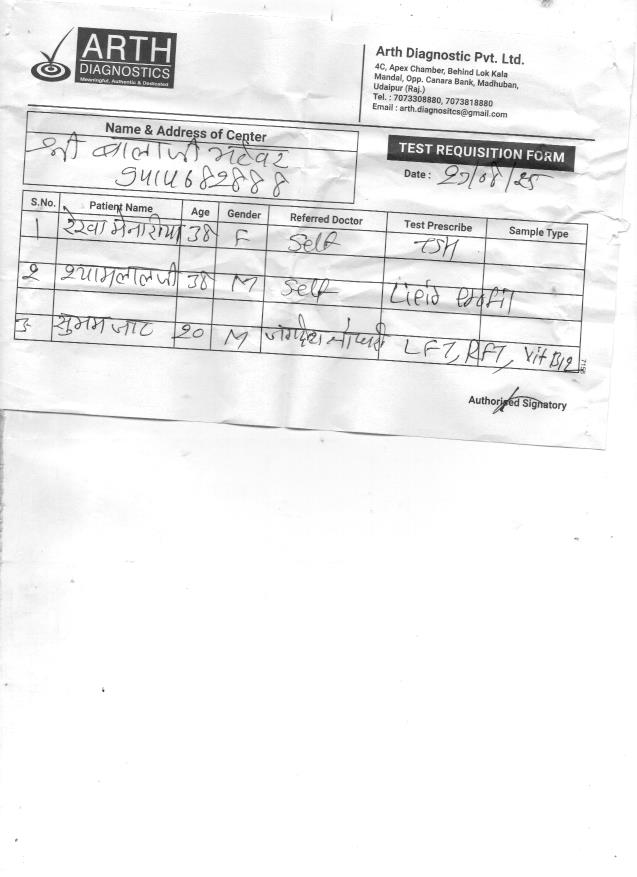 ARTH
DIAGNOSTICS
Meaningful, Authentic & Dedicated
Arth Diagnostic Pvt. Ltd.
4C, Apex Chamber, Behind Lok Kala
Mandal, Opp. Canara Bank, Madhuban,
Udaipur (Raj.)
Tel. : 7073308880, 7073818880
Email : arth.diagnositcs@gmail.com
Name & Address of Center
श्री बालाजी भटेवर
TEST REQUISITION FORM
Date :
S.No. Patient Name Age Gender Referred Doctor Test Prescribe Sample Type
1 रेखा मेनारीया 38 F Self TSH
२ श्यामलालजी 38 M Self Lipid
३ शुभम जाट २0 M LFT, RFT, Vit B12
Authorised Signatory